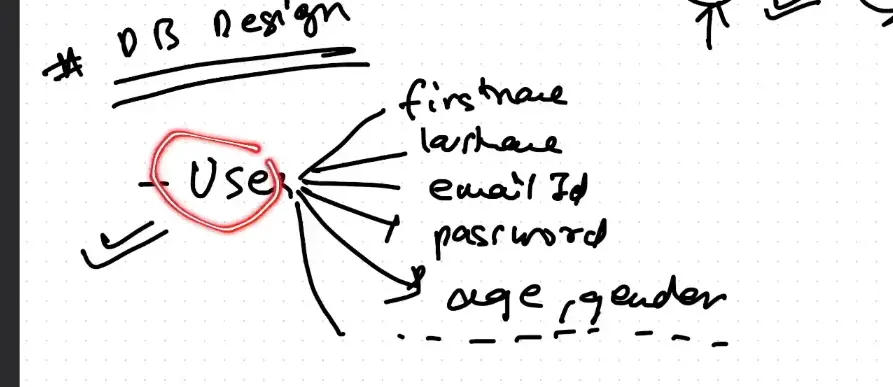 * DB Design
- User
firstname
lastname
email Id
password
age, gender
- - - - - - - -